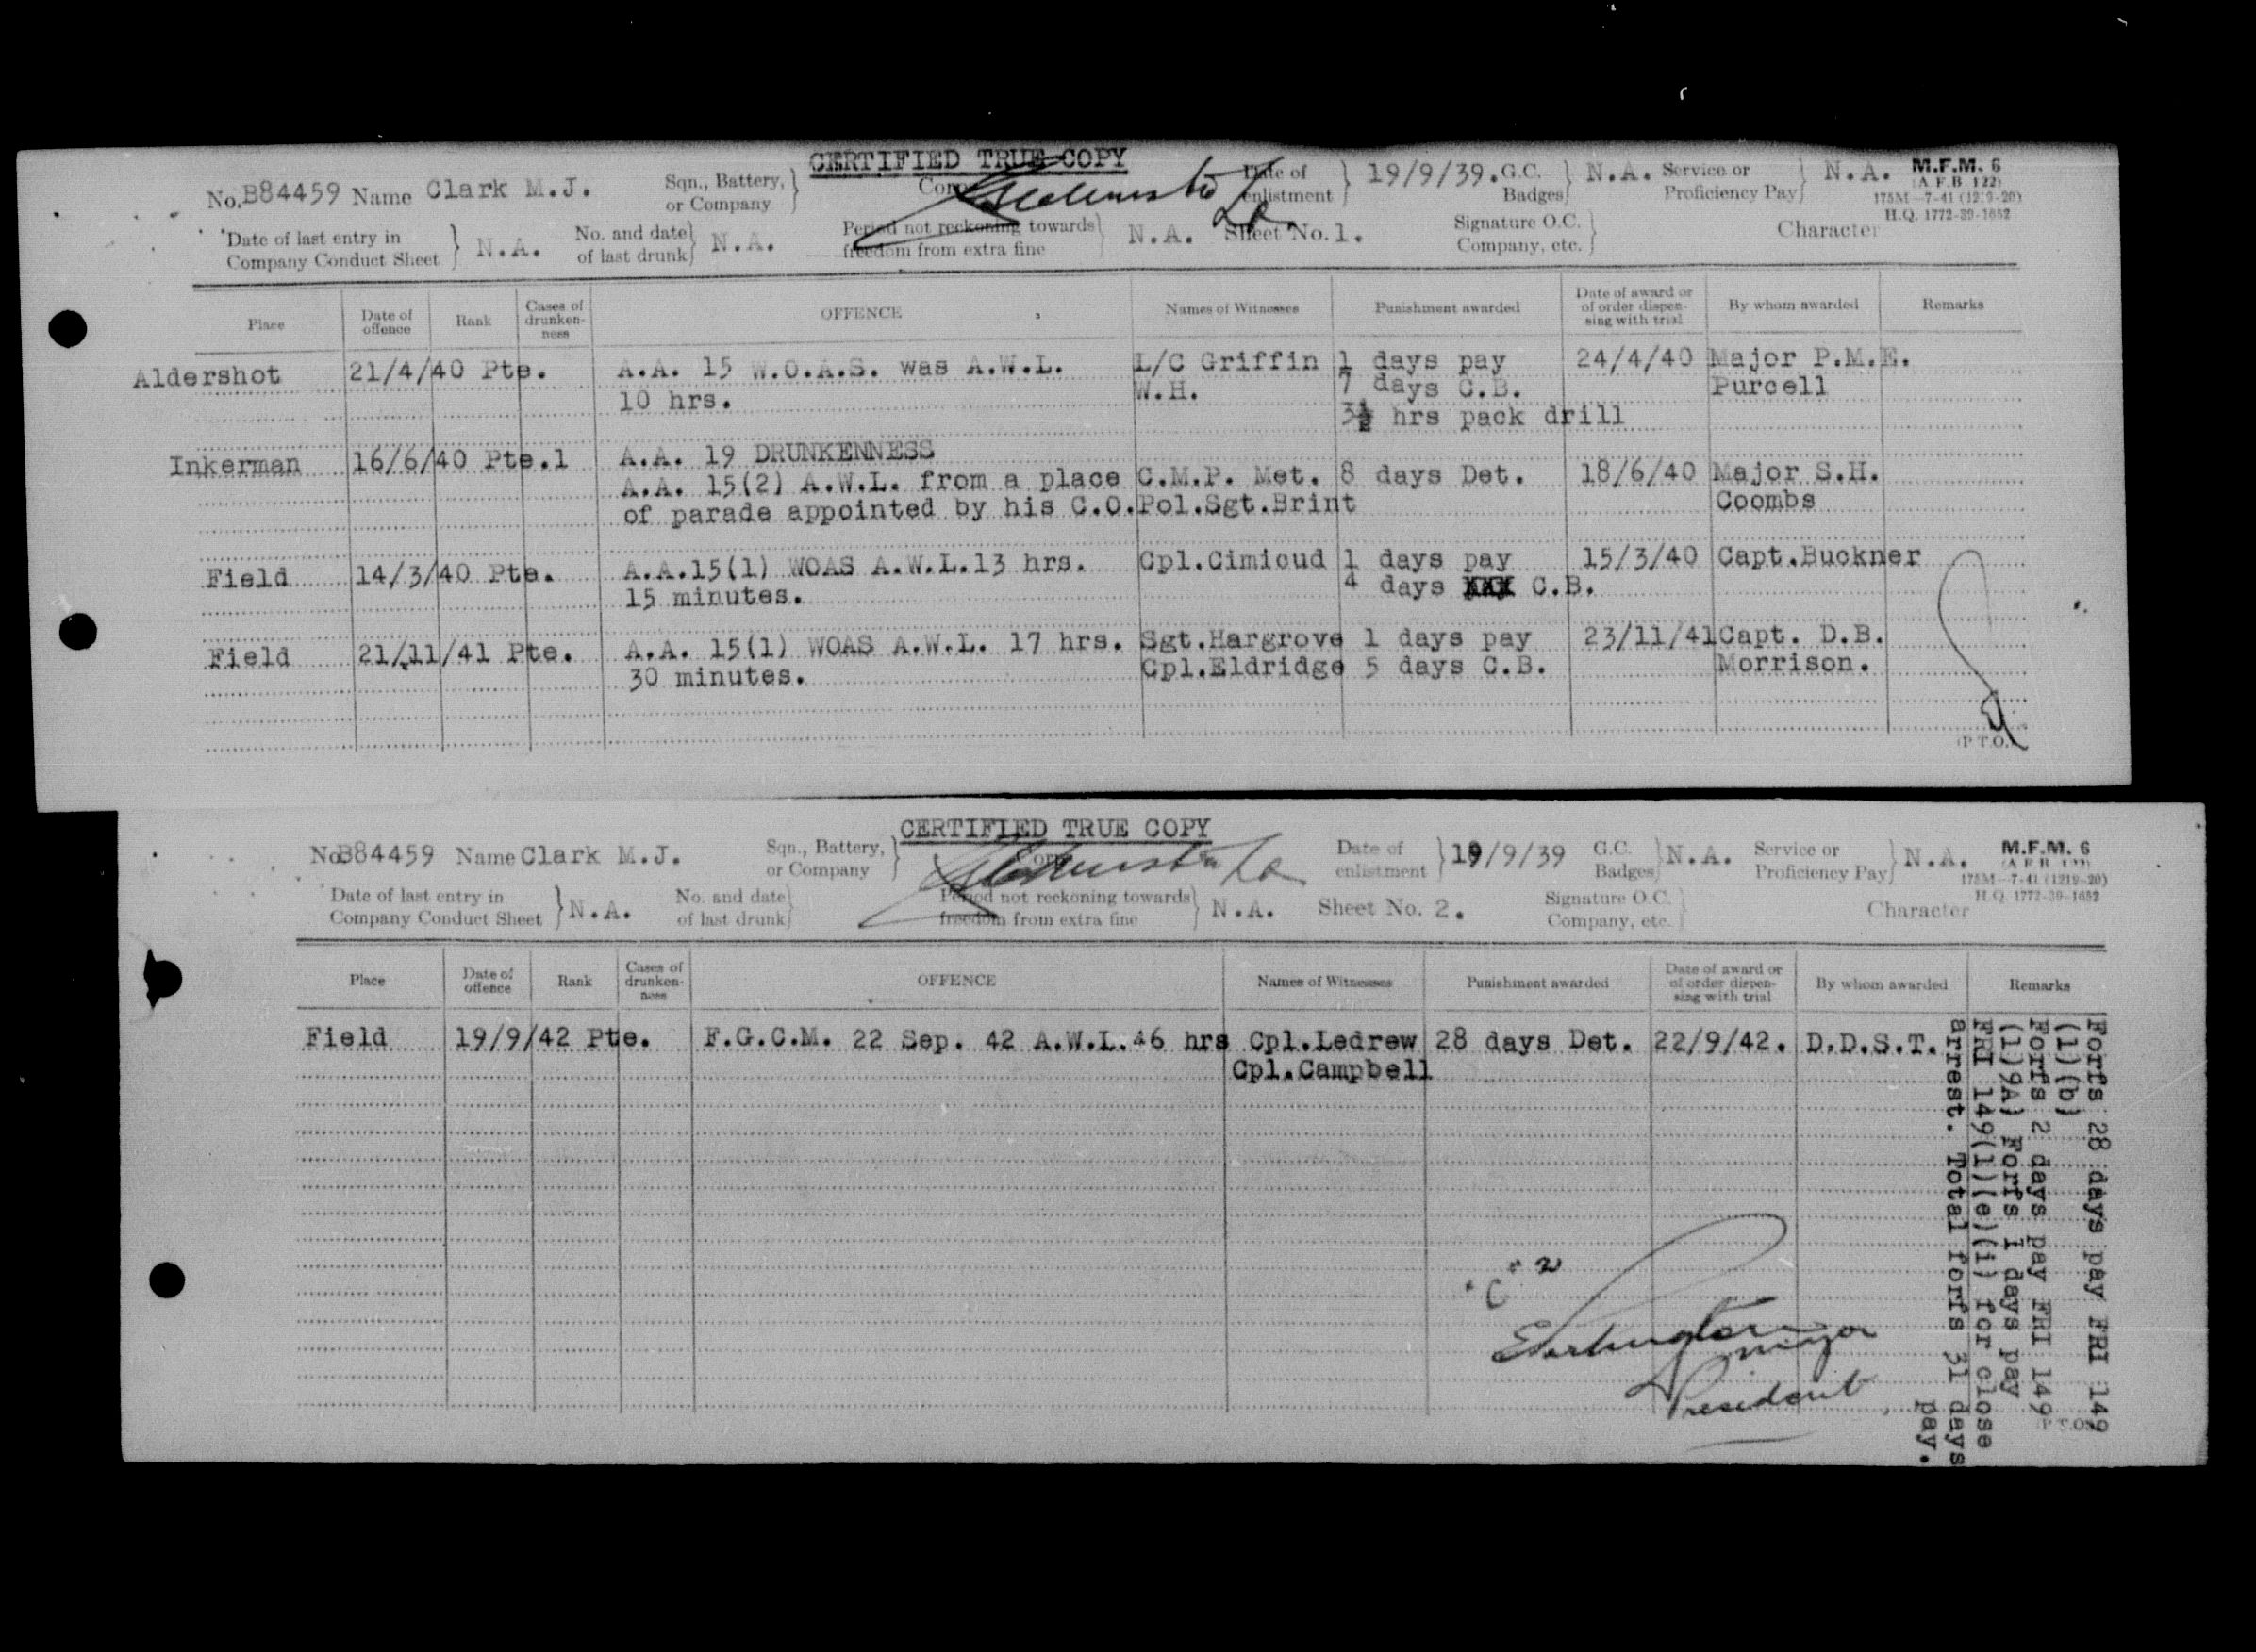 CERTIFIED TRUE COPY
No. B84459 Name Clark M.J. Sqn., Battery, or Company Corps Date of enlistment 19/9/39. G.C. Badges N.A. Service or Proficiency Pay N.A. M.F.M. 6
(A.F.B. 122)
175M-7-41 (1212-20)
H.Q. 1772-39-1652
Date of last entry in Company Conduct Sheet N.A. No. and date of last drunk N.A. Period not reckoning towards freedom from extra fine N.A. Sheet No. 1. Signature O.C. Company, etc. Character
Place Date of offence Rank Cases of drunken-ness OFFENCE Names of Witnesses Punishment awarded Date of award or of order dispen-sing with trial By whom awarded Remarks
Aldershot 21/4/40 Pte. A.A. 15 W.O.A.S. was A.W.L. L/C Griffin 1 days pay 24/4/40 Major P.M.E.
10 hrs. W.H. 7 days C.B. Purcell
3½ hrs pack drill
Inkerman 16/6/40 Pte. 1 A.A. 19 DRUNKENNESS
A.A. 15(2) A.W.L. from a place C.M.P. Met. 8 days Det. 18/6/40 Major S.H.
of parade appointed by his C.O. Pol.Sgt.Brint Coombs
Field 14/3/40 Pte. A.A.15(1) WOAS A.W.L.13 hrs. Cpl.Cimicud 1 days pay 15/3/40 Capt.Buckner
15 minutes. 4 days C.B.
Field 21/11/41 Pte. A.A. 15(1) WOAS A.W.L. 17 hrs. Sgt.Hargrove 1 days pay 23/11/41 Capt. D.B.
30 minutes. Cpl.Eldridge 5 days C.B. Morrison.
(P.T.O.)
CERTIFIED TRUE COPY
No. B84459 Name Clark M.J. Sqn., Battery, or Company Corps Date of enlistment 19/9/39 G.C. Badges N.A. Service or Proficiency Pay N.A. M.F.M. 6
(A.F.B. 122)
175M-7-41 (1212-20)
H.Q. 1772-39-1652
Date of last entry in Company Conduct Sheet N.A. No. and date of last drunk Period not reckoning towards freedom from extra fine N.A. Sheet No. 2. Signature O.C. Company, etc. Character
Place Date of offence Rank Cases of drunken-ness OFFENCE Names of Witnesses Punishment awarded Date of award or of order dispen-sing with trial By whom awarded Remarks
Field 19/9/42 Pte. F.G.C.M. 22 Sep. 42 A.W.L.46 hrs Cpl.Ledrew 28 days Det. 22/9/42. D.D.S.T.
Cpl.Campbell
Forfs 28 days pay FRI 149
(1)(b)
Forfs 2 days pay FRI 149
(1)9A) Forfs 1 days pay
FRI 149(1)(e)(i) for close
arrest. Total forfs 31 days
pay.
"C" 2
Major
President